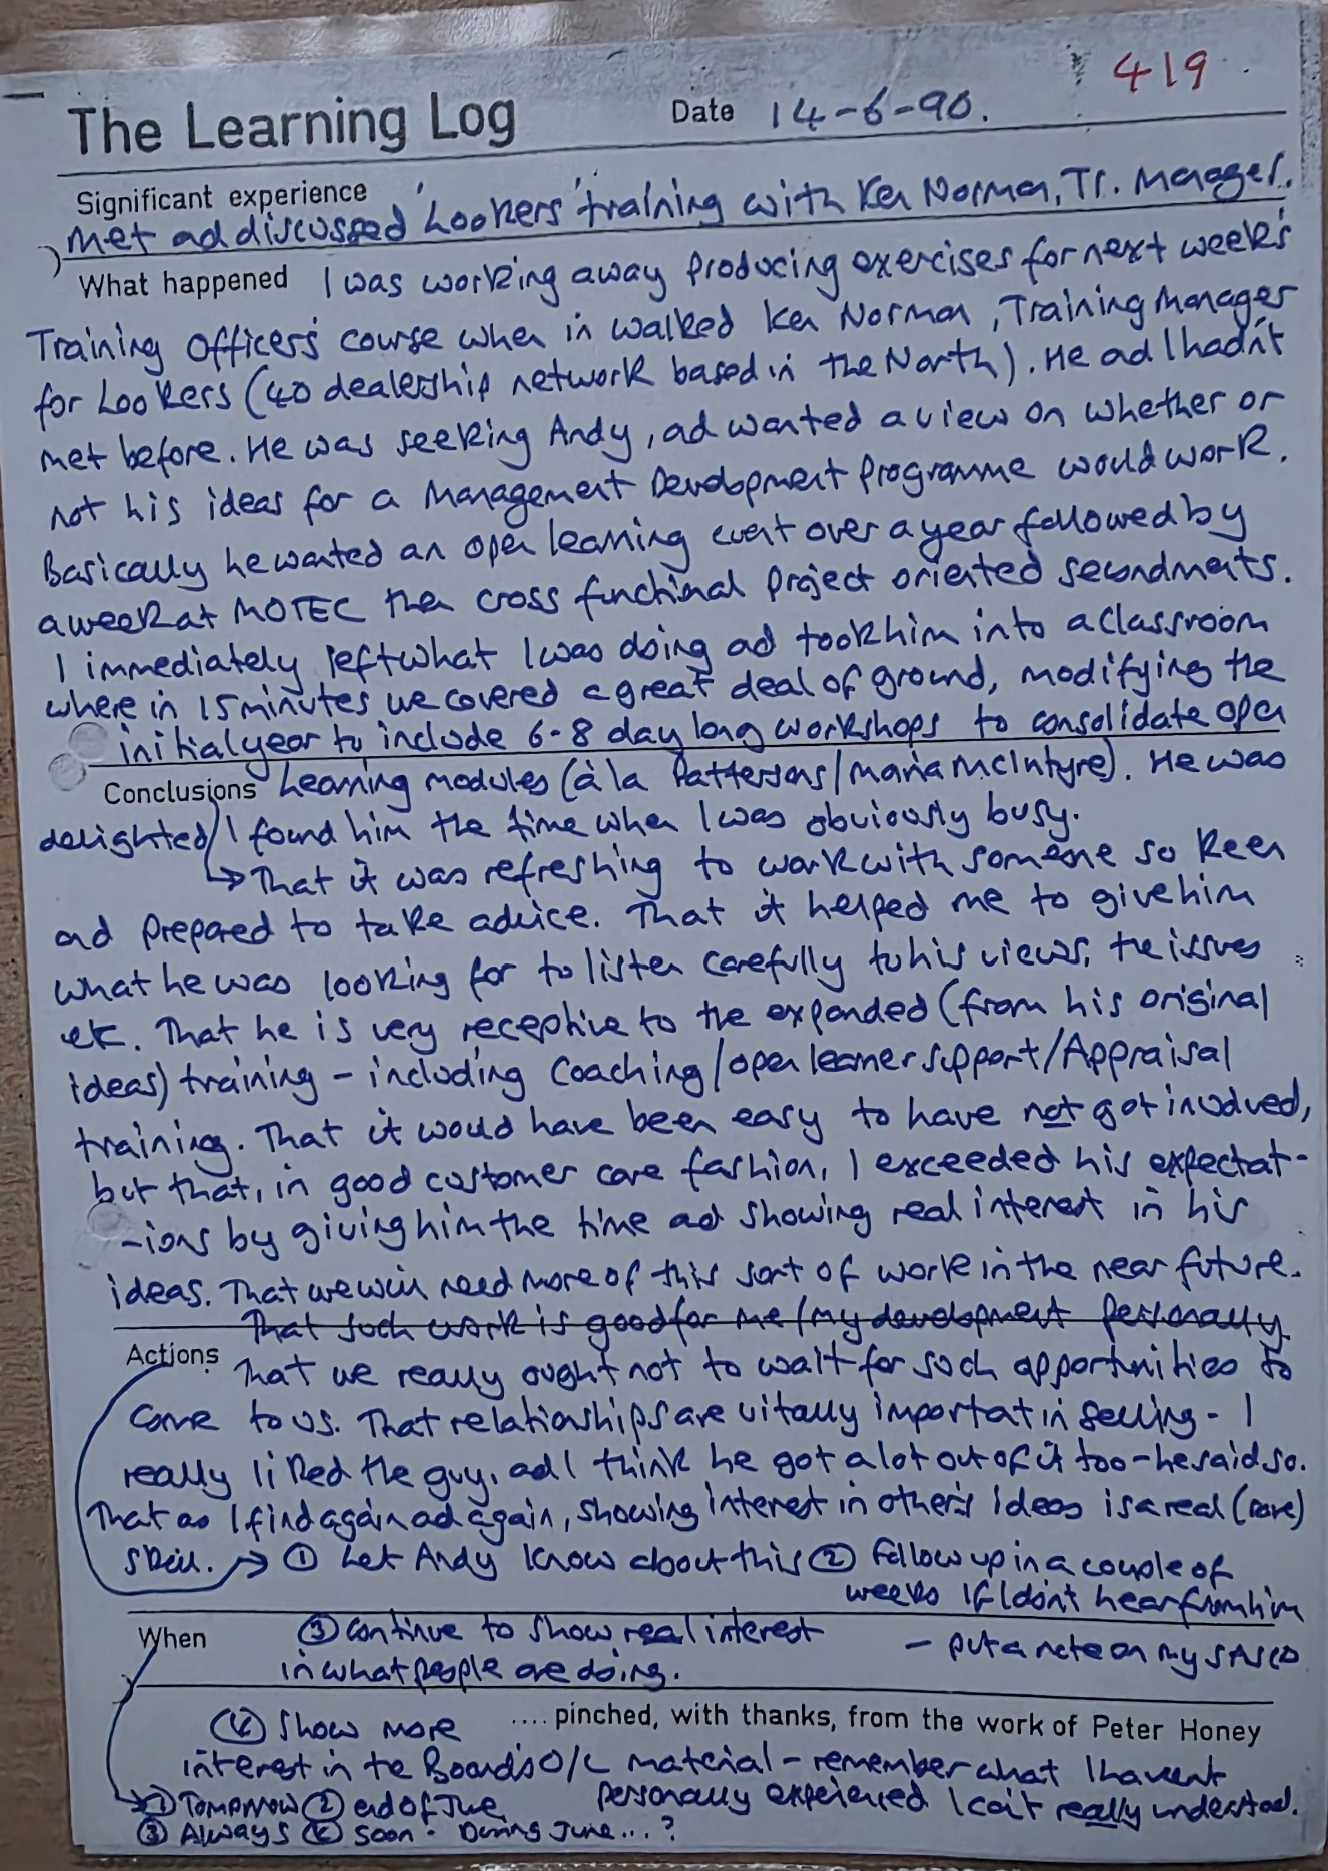 419
The Learning Log Date 14-6-90.
Significant experience
Met ad discussed 'Lookers' training with Ken Norman, Tr. Manager.
What happened I was working away producing exercises for next week's
Training Officers' course when in walked Ken Norman, Training Manager
for Lookers (40 dealership network based in the North). He ad I hadn't
met before. He was seeking Andy, ad wanted a view on whether or
not his ideas for a Management Development Programme would work.
Basically he wanted an open learning event over a year followed by
a week at MOTEC then cross functional project oriented secondments.
I immediately left what I was doing ad took him into a classroom
where in 15 minutes we covered a great deal of ground, modifying the
initial year to include 6-8 day long workshops to consolidate open
Conclusions Learning modules (à la Pattersons/Maria McIntyre). He was
delighted I found him the time when I was obviously busy.
→ That it was refreshing to work with someone so keen
and prepared to take advice. That it helped me to give him
what he was looking for to listen carefully to his views, the issues
etc. That he is very receptive to the expanded (from his original
ideas) training - including Coaching/open learner support/Appraisal
training. That it would have been easy to have not got involved,
but that, in good customer care fashion, I exceeded his expectat-
-ions by giving him the time ad showing real interest in his
ideas. That we will need more of this sort of work in the near future.
That such work is good for me/my development personally.
Actions That we really ought not to wait for such opportunities to
come to us. That relationships are vitally important in selling - I
really liked the guy, ad I think he got a lot out of it too - he said so.
That as I find again ad again, showing interest in other's ideas is a real (rare)
skill. → ① Let Andy know about this ② Follow up in a couple of
weeks if I don't hear from him
When ③ Continue to show real interest - put a note on my SASCO
in what people are doing.
④ Show more .... pinched, with thanks, from the work of Peter Honey
interest in the Board's O/L material - remember what I haven't
① Tomorrow ② end of June personally experienced I can't really understand.
③ Always ④ Soon - During June...?